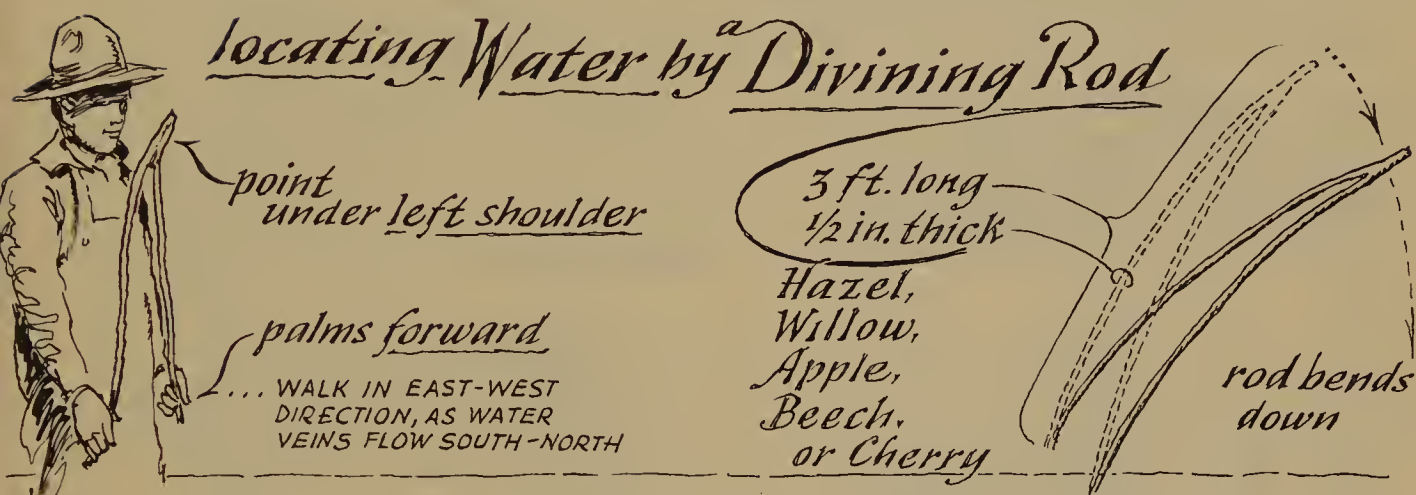 locating Water by a Divining Rod
point
under left shoulder
palms forward
... WALK IN EAST-WEST
DIRECTION, AS WATER
VEINS FLOW SOUTH-NORTH
3 ft. long
1/2 in. thick
Hazel,
Willow,
Apple,
Beech,
or Cherry
rod bends
down